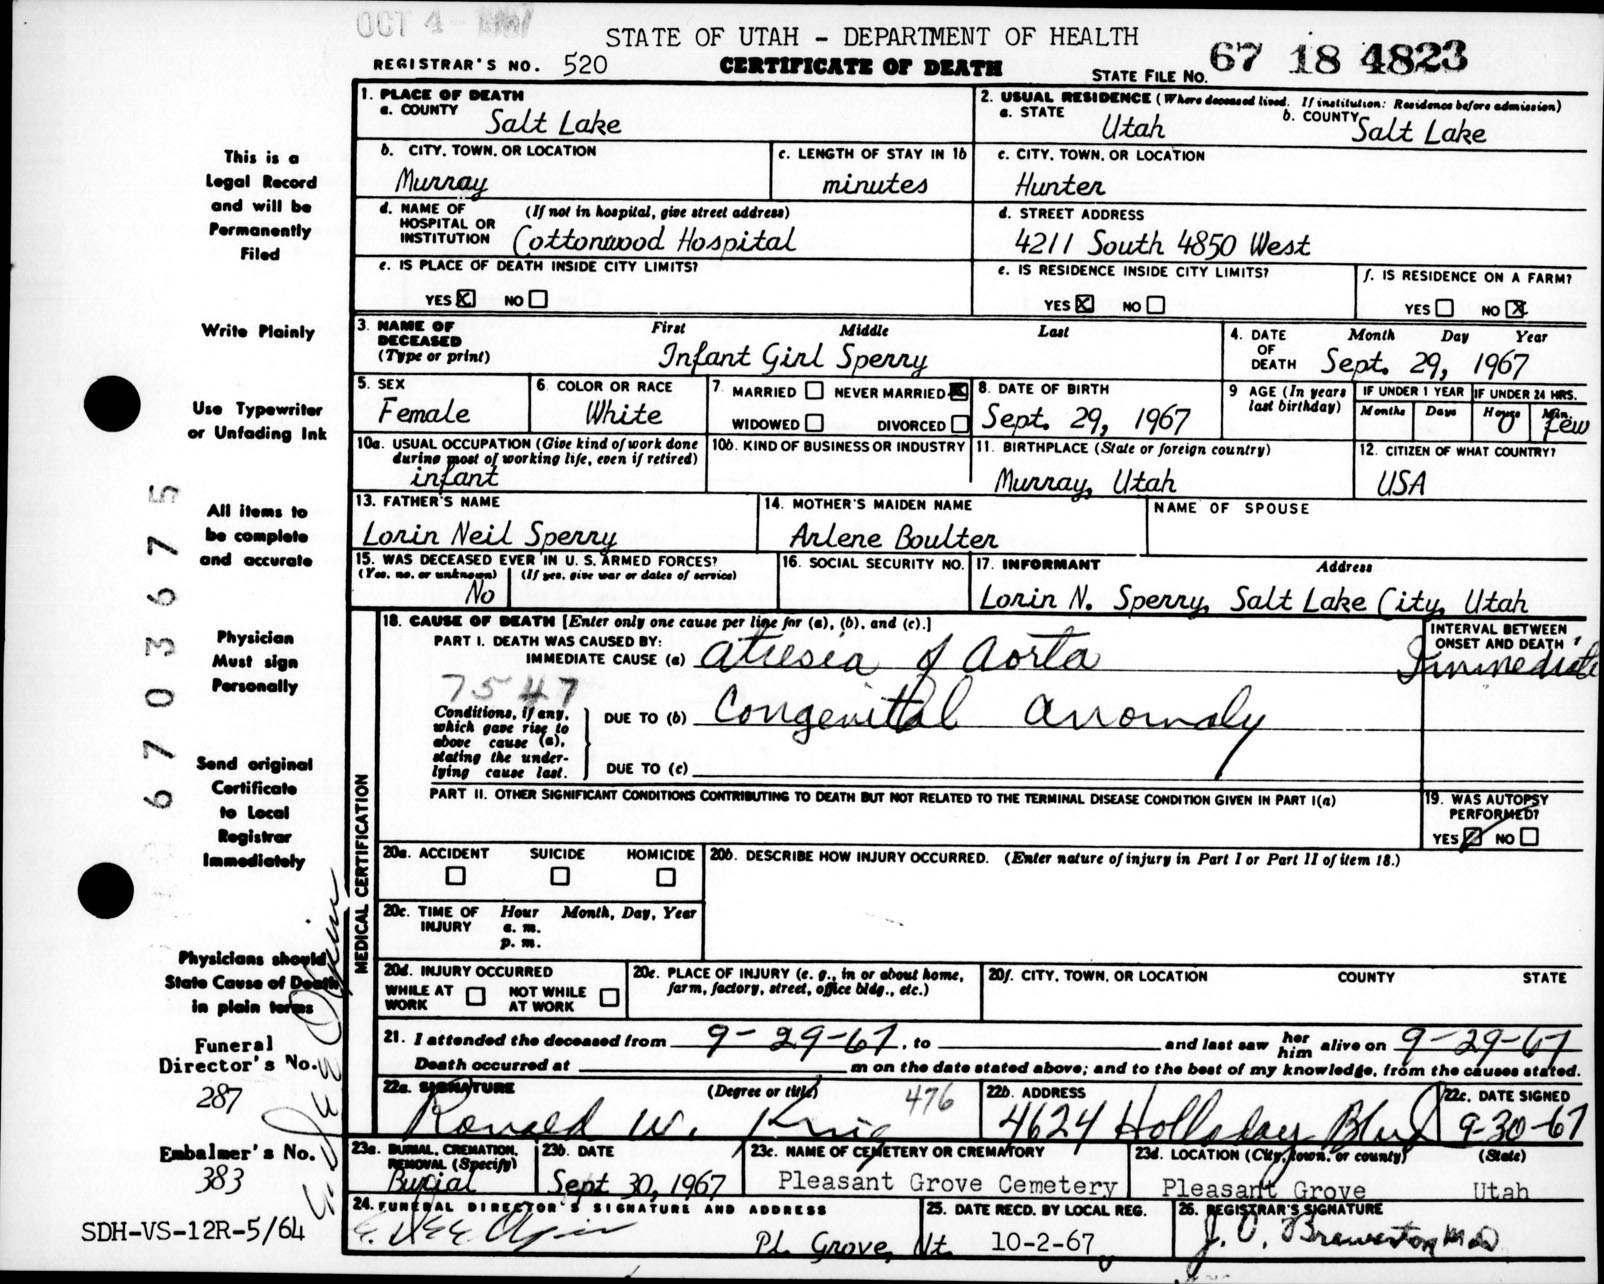 OCT 4 - 1967
STATE OF UTAH - DEPARTMENT OF HEALTH
REGISTRAR'S NO. 520 CERTIFICATE OF DEATH STATE FILE NO. 67 18 4823
1. PLACE OF DEATH
a. COUNTY Salt Lake
2. USUAL RESIDENCE (Where deceased lived. If institution: Residence before admission)
a. STATE Utah b. COUNTY Salt Lake
b. CITY, TOWN, OR LOCATION Murray
c. LENGTH OF STAY IN 1b minutes
c. CITY, TOWN, OR LOCATION Hunter
d. NAME OF HOSPITAL OR INSTITUTION (If not in hospital, give street address) Cottonwood Hospital
d. STREET ADDRESS 4211 South 4850 West
e. IS PLACE OF DEATH INSIDE CITY LIMITS?
YES X NO
e. IS RESIDENCE INSIDE CITY LIMITS?
YES X NO
f. IS RESIDENCE ON A FARM?
YES NO X
3. NAME OF DECEASED (Type or print) First Middle Last
Infant Girl Sperry
4. DATE OF DEATH Month Day Year
Sept. 29, 1967
5. SEX Female
6. COLOR OR RACE White
7. MARRIED NEVER MARRIED X
WIDOWED DIVORCED
8. DATE OF BIRTH Sept. 29, 1967
9 AGE (In years last birthday)
IF UNDER 1 YEAR Months Days
IF UNDER 24 HRS. Hours 0 Min. Few
10a. USUAL OCCUPATION (Give kind of work done during most of working life, even if retired)
infant
10b. KIND OF BUSINESS OR INDUSTRY
11. BIRTHPLACE (State or foreign country)
Murray, Utah
12. CITIZEN OF WHAT COUNTRY?
USA
13. FATHER'S NAME
Lorin Neil Sperry
14. MOTHER'S MAIDEN NAME
Arlene Boulter
NAME OF SPOUSE
15. WAS DECEASED EVER IN U. S. ARMED FORCES?
(Yes, no, or unknown) (If yes, give war or dates of service)
No
16. SOCIAL SECURITY NO.
17. INFORMANT Address
Lorin N. Sperry, Salt Lake City, Utah
MEDICAL CERTIFICATION
18. CAUSE OF DEATH [Enter only one cause per line for (a), (b), and (c).]
PART I. DEATH WAS CAUSED BY:
IMMEDIATE CAUSE (a) atresia of Aorta
INTERVAL BETWEEN ONSET AND DEATH
Immediate
7547
Conditions, if any, which gave rise to above cause (a), stating the underlying cause last.
DUE TO (b) Congenital anomaly
DUE TO (c)
PART II. OTHER SIGNIFICANT CONDITIONS CONTRIBUTING TO DEATH BUT NOT RELATED TO THE TERMINAL DISEASE CONDITION GIVEN IN PART I(a)
19. WAS AUTOPSY PERFORMED?
YES NO
20a. ACCIDENT SUICIDE HOMICIDE
20b. DESCRIBE HOW INJURY OCCURRED. (Enter nature of injury in Part I or Part II of item 18.)
20c. TIME OF INJURY Hour Month, Day, Year
a. m.
p. m.
20d. INJURY OCCURRED
WHILE AT WORK NOT WHILE AT WORK
20e. PLACE OF INJURY (e. g., in or about home, farm, factory, street, office bldg., etc.)
20f. CITY, TOWN, OR LOCATION COUNTY STATE
21. I attended the deceased from 9-29-67, to and last saw her him alive on 9-29-67
Death occurred at m on the date stated above; and to the best of my knowledge, from the causes stated.
22a. SIGNATURE (Degree or title) 476
Ronald W. King
22b. ADDRESS
4624 Holladay Blvd
22c. DATE SIGNED
9-30-67
23a. BURIAL, CREMATION, REMOVAL (Specify)
Burial
23b. DATE
Sept 30, 1967
23c. NAME OF CEMETERY OR CREMATORY
Pleasant Grove Cemetery
23d. LOCATION (City, town, or county) (State)
Pleasant Grove Utah
24. FUNERAL DIRECTOR'S SIGNATURE AND ADDRESS
Pl. Grove, Ut.
25. DATE RECD. BY LOCAL REG.
10-2-67
26. REGISTRAR'S SIGNATURE
J. O. Brewerton MD
This is a
Legal Record
and will be
Permanently
Filed
Write Plainly
Use Typewriter
or Unfading Ink
All items to
be complete
and accurate
Physician
Must sign
Personally
Send original
Certificate
to Local
Registrar
Immediately
Physicians should
State Cause of Death
in plain terms
Funeral
Director's No.
287
Embalmer's No.
383
SDH-VS-12R-5/64
6703675